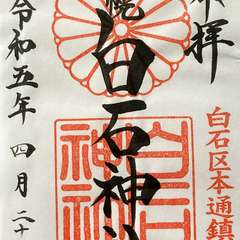 奉拝
白石区本通鎮
札幌白石神社
令和五年四月二十
白石神社